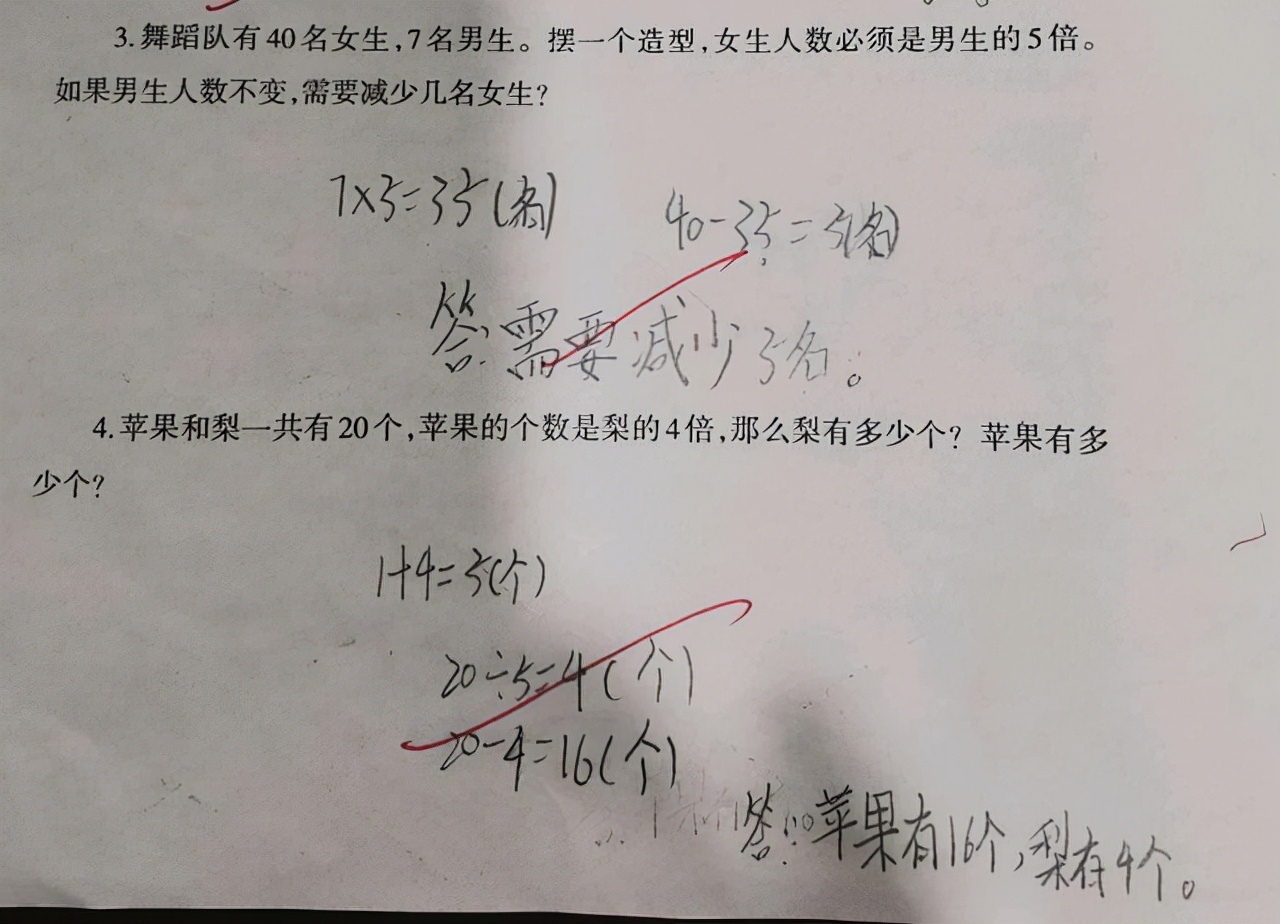 3.舞蹈队有40名女生,7名男生。摆一个造型,女生人数必须是男生的5倍。
如果男生人数不变,需要减少几名女生?
7×5=35(名)
40-35=5(名)
答:需要减少5名。
4.苹果和梨一共有20个,苹果的个数是梨的4倍,那么梨有多少个?苹果有多
少个?
1+4=5(个)
20÷5=4(个)
20-4=16(个)
答:苹果有16个,梨有4个。